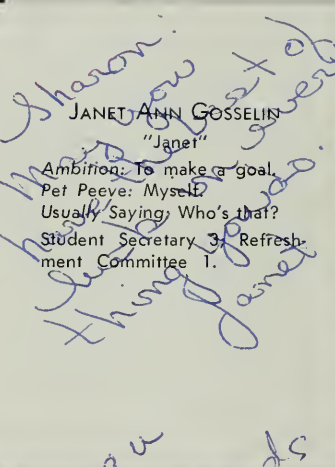 JANET ANN GOSSELIN
"Janet"
Ambition: To make a goal.
Pet Peeve: Myself.
Usually Saying: Who's that?
Student Secretary 3; Refresh-
ment Committee 1.
Sharon.
May you
have the best of
luck in every
thing you do.
Janet